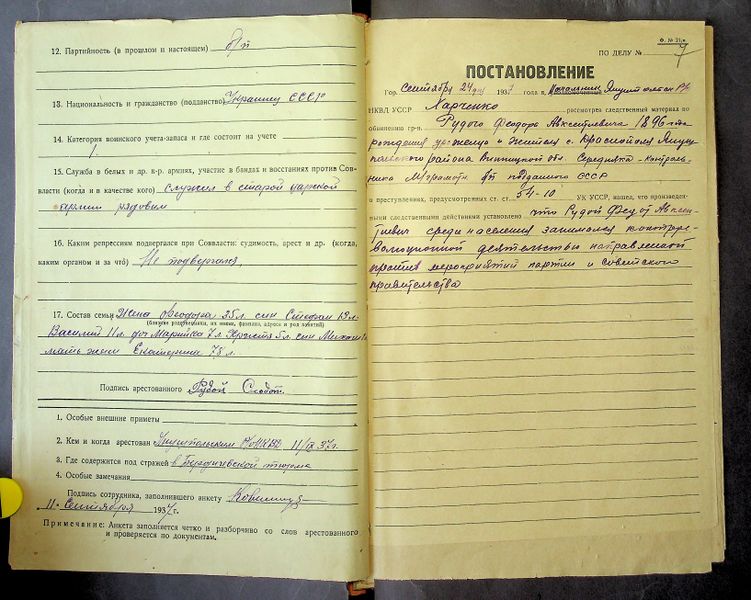 12. Партийность (в прошлом и настоящем) б/п
13. Национальность и гражданство (подданство) Украинец СССР
14. Категория воинского учета-запаса и где состоит на учете
15. Служба в белых и др. к-р. армиях, участие в бандах и восстаниях против Сов-
власти (когда и в качестве кого) служил в старой царской
армии рядовим
16. Каким репрессиям подвергался при Соввласти: судимость, арест и др. (когда,
каким органом и за что) Не подвергался
17. Состав семьи Жена Феодора 35 л. син Стефан 13 л.
(близкие родственники, их имена, фамилии, адреса и род занятий)
Василий 11 л. доч Марийка 7 л. Христя 5 л. син
мать жени Екатерина 78 л.
Подпись арестованного Рудой
1. Особые внешние приметы
2. Кем и когда арестован Янушпольским РОНКВД 11/IX 37 г.
3. Где содержится под стражей в Бердичевской тюрме
4. Особые замечания
Подпись сотрудника, заполнившего анкету
11 Сентября 1937 г.
Примечание: Анкета заполняется четко и разборчиво со слов арестованного
и проверяется по документам.
Ф. № 21/а
ПО ДЕЛУ № 7
ПОСТАНОВЛЕНИЕ
Гор. сентябрь 24 дня 1937 года я, Начальник РО
НКВД УССР Харченко рассмотрев следственный материал по
обвинению гр-н. Рудого Феодора Авксентиевича 1896 года
рождения уроженца и жителя с. Краснополя Януш
польского района Винницкой обл. Середняка-
ника М/грамотн. б/п поданого СССР
в преступлениях, предусмотренных ст. ст. 54-10 УК УССР, нашел, что произведен-
ными следственными действиями установлено что Рудой Федот Авксен
тиевич среди населения занимался контррев-
волюционной деятельностью направленой
против мероприятий партии и советского
правительства